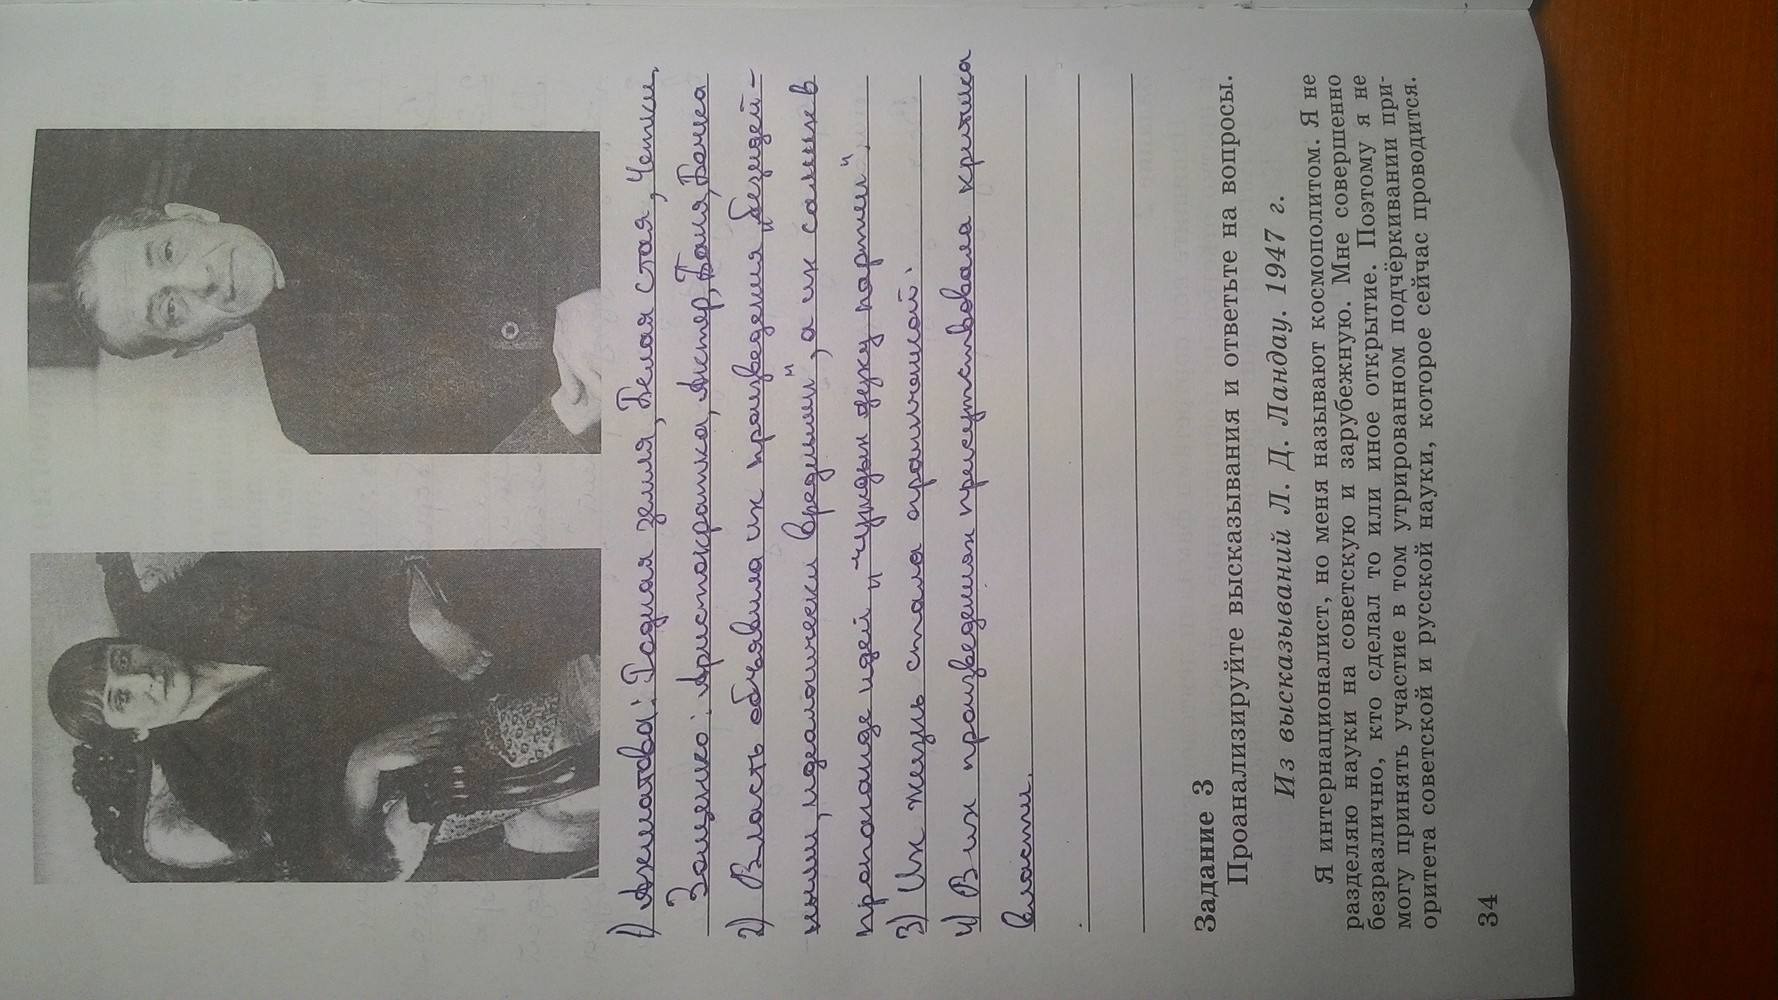 1) Ахматова: Родная земля, Белая стая, Чётки,
Зощенко: Аристократка, Актер, Баня, Банка
2) Власть объявила их произведения „безидей-
ными, идеологически вредными", а их самих в
пропаганде идей „чуждых духу партии".
3) Их жизнь стала опальной.
4) В их произведениях присутствовала критика
власти.
Задание 3
Проанализируйте высказывания и ответьте на вопросы.
Из высказываний Л. Д. Ландау. 1947 г.
Я интернационалист, но меня называют космополитом. Я не
разделяю науки на советскую и зарубежную. Мне совершенно
безразлично, кто сделал то или иное открытие. Поэтому я не
могу принять участие в том утрированном подчёркивании при-
оритета советской и русской науки, которое сейчас проводится.
34